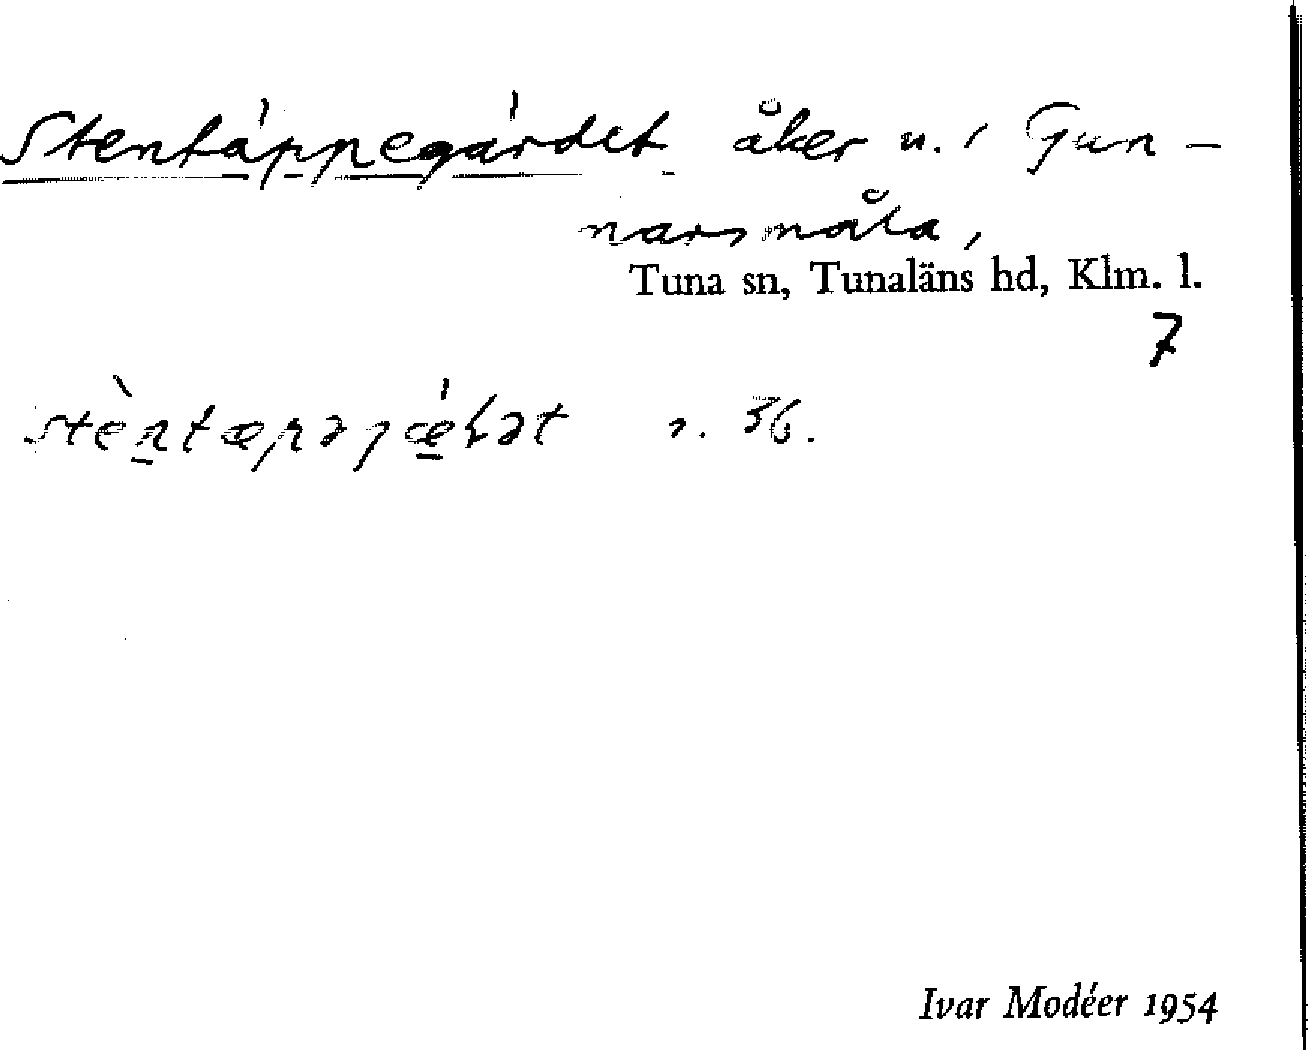 Stentäppegärdet åker n. i Gun-
narsmåla,
Tuna sn, Tunaläns hd, Klm. l.
7
s. 36.
Ivar Modéer 1954